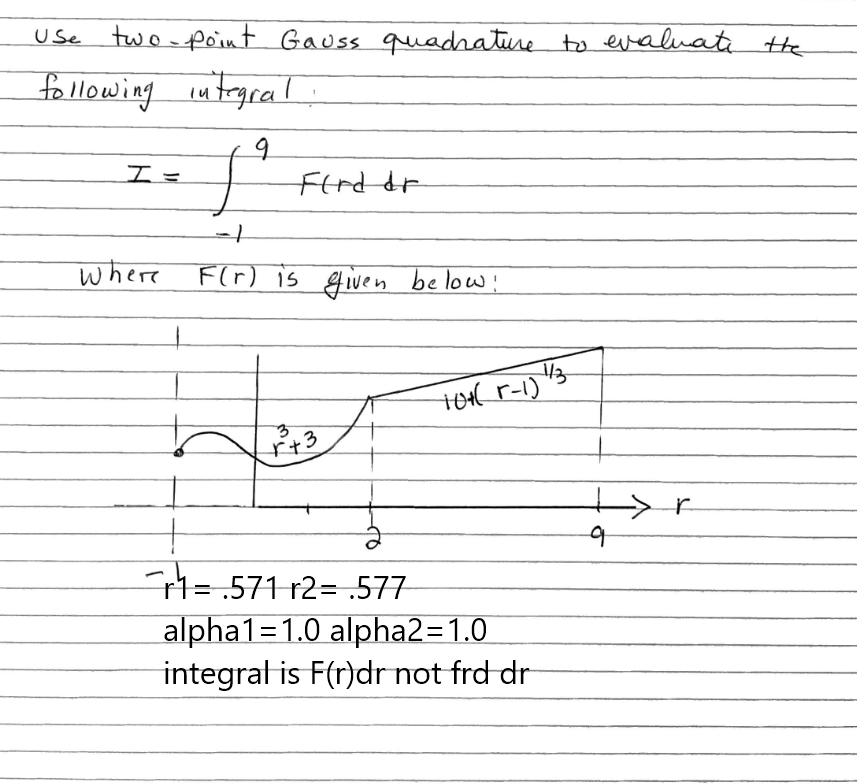 Use two-point Gauss quadrature to evaluate the
following integral:
I = ∫ 9 -1 F(rd dr
where F(r) is given below:
10+( r-1)^1/3
r^3+3
r
2 9
-1
r1= .571 r2= .577
alpha1=1.0 alpha2=1.0
integral is F(r)dr not frd dr